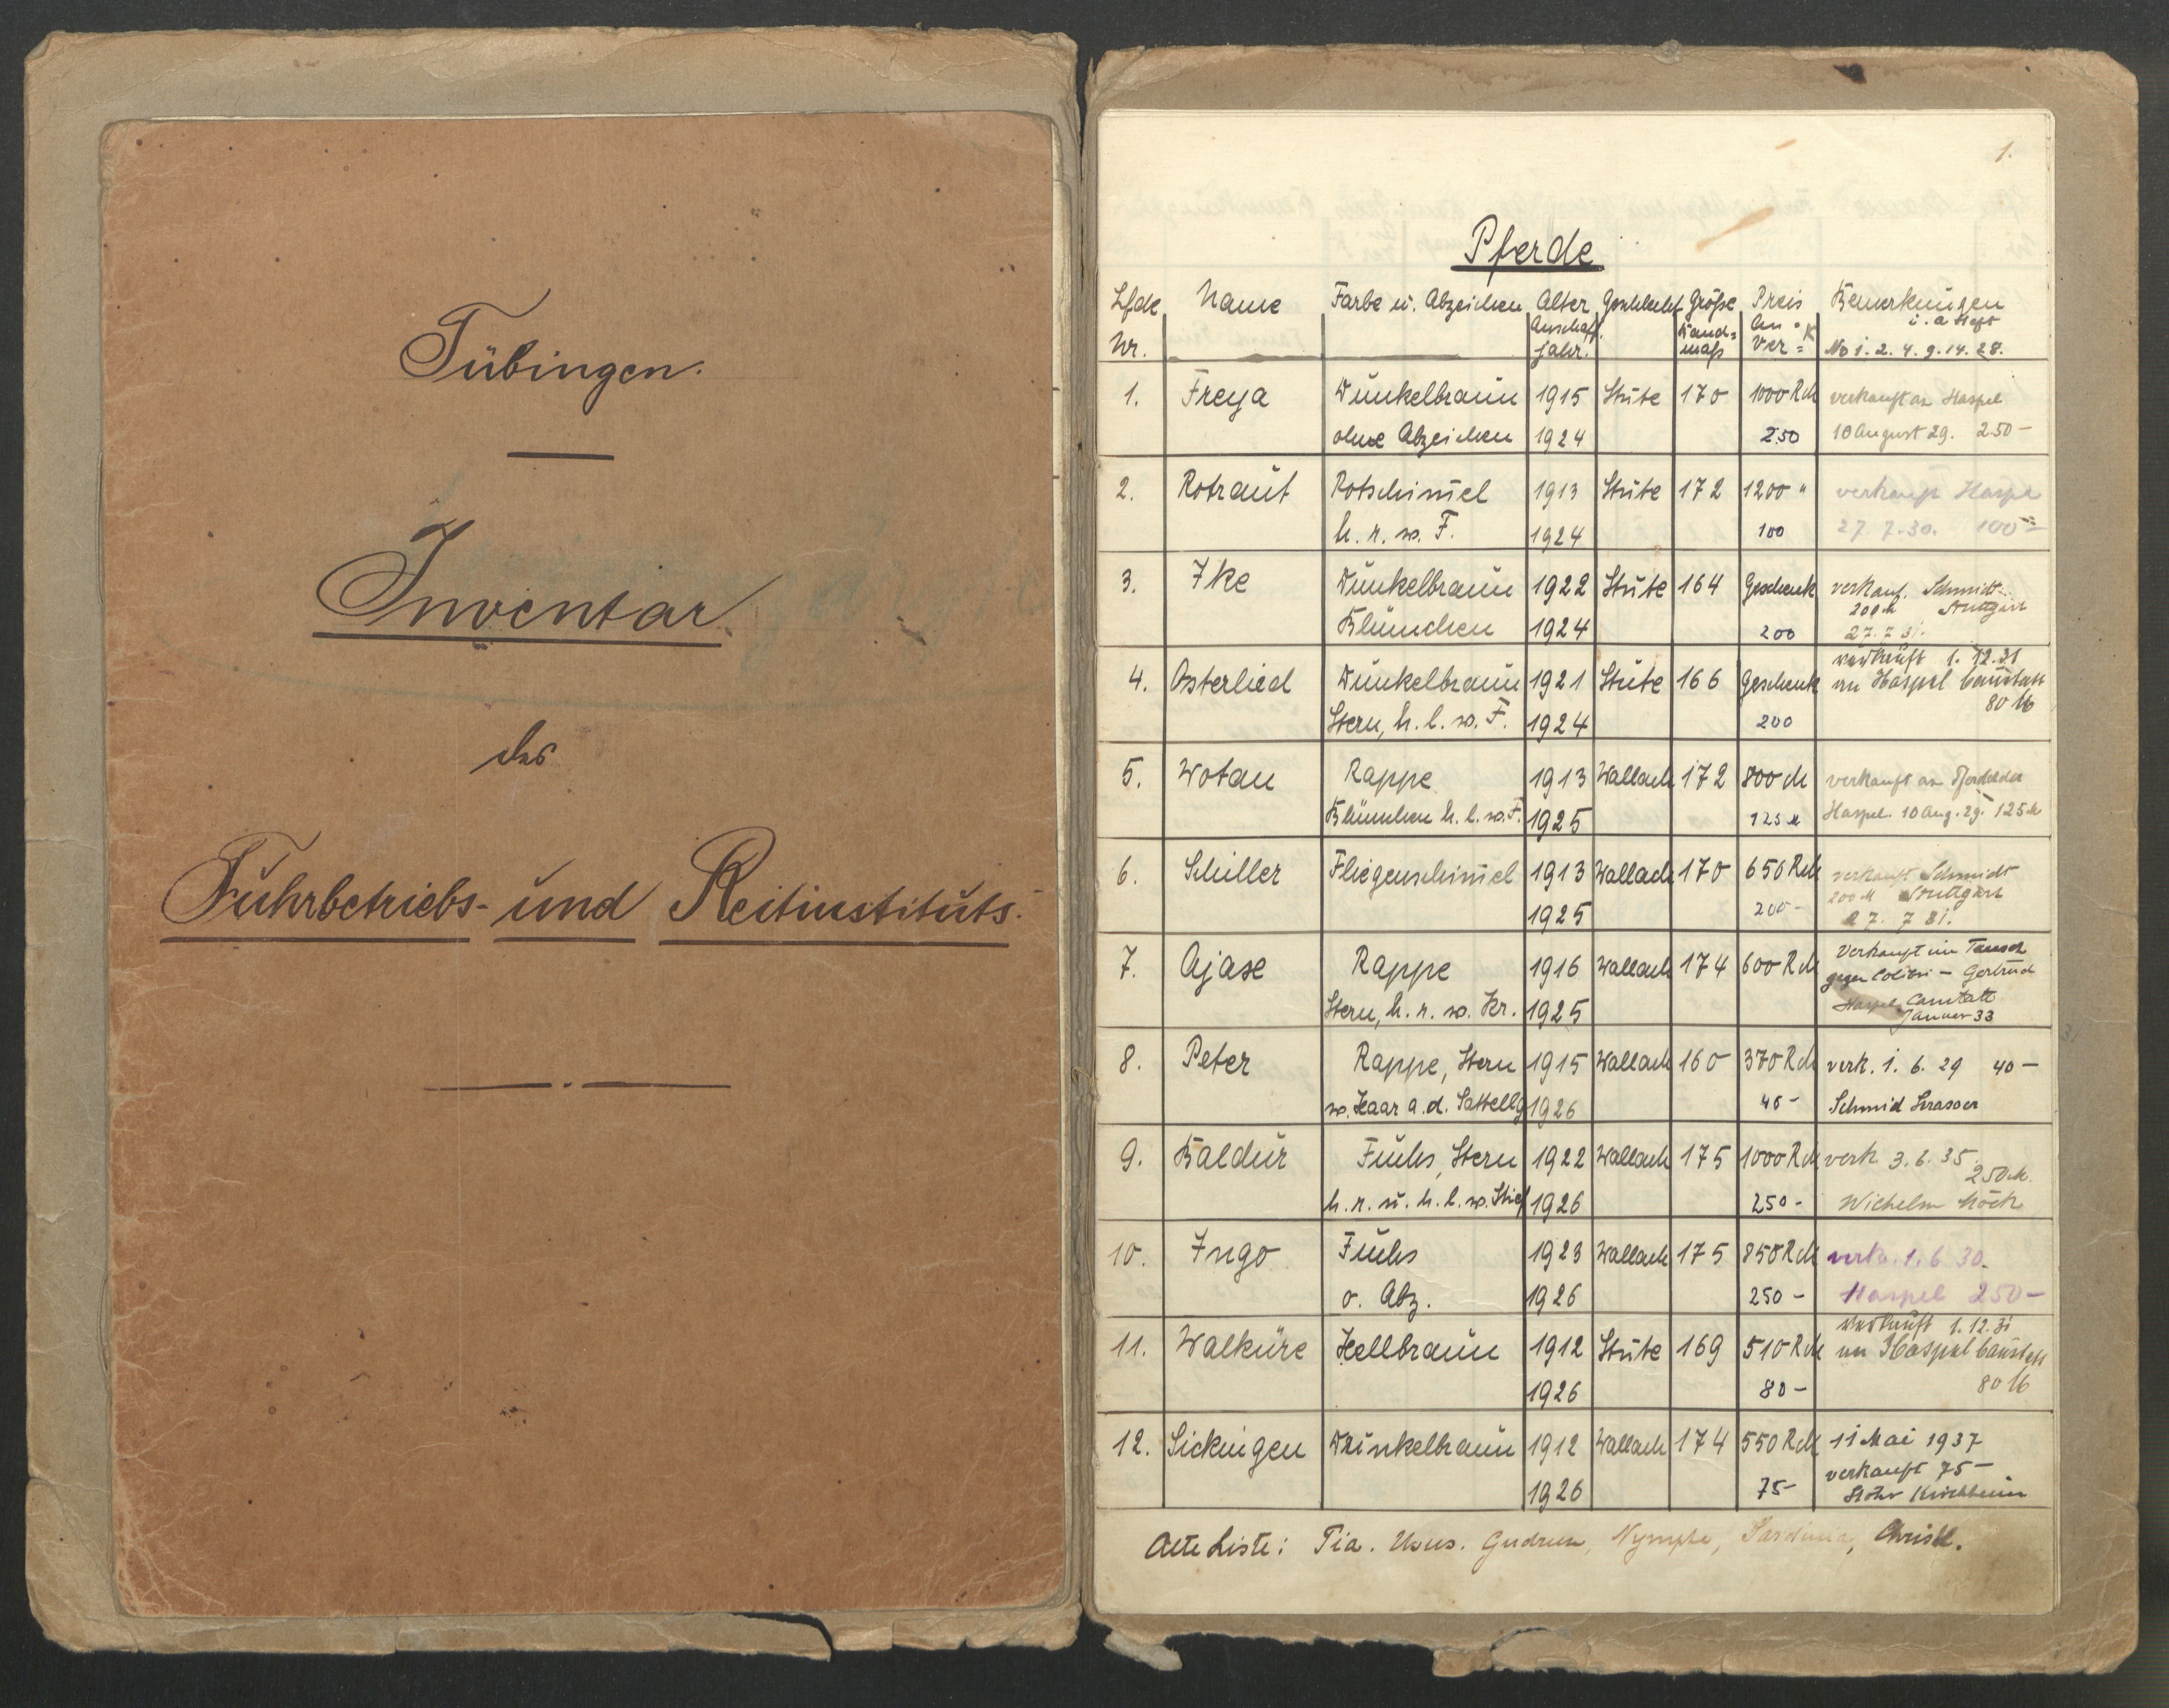 Tübingen.
Inventar
des
Fuhrbetriebs- und Reitinstituts.
1.
Pferde
Lfde Nr. Name Farbe u. Abzeichen Alter Anschaff. jahr. Geschlecht Größe Bandmaß Preis An- Ver= K Bemerkungen i. a Heft No 1. 2. 4. 9. 14. 28.
1. Freya Dunkelbraun 1915 Stute 170 1000 RM verkauft an Haspel
ohne Abzeichen 1924 250 10 August 29. 250 –
2. Rotraut Rotschimmel 1913 Stute 172 1200 " verkauft Haspel
h. r. w. F. 1924 100 27. 7. 30. 100 –
3. Ike Dunkelbraun 1922 Stute 164 Geschenk verkauf. Schmidt
200 M Stuttgart
Blümchen 1924 200 27. 7 31.
4. Osterlied Dunkelbraun 1921 Stute 166 Geschenk verkauft 1. 12. 31
an Haspel Canstatt
80 M
Stern, h. l. w. F. 1924 200
5. Wotan Rappe 1913 Wallach 172 800 M verkauft an Pferdehdler
Blümchen h. l. w. F. 1925 125 M Haspel. 10 Aug. 29. 125 M
6. Schiller Fliegenschimmel 1913 Wallach 170 650 RM verkauft Schmidt
200 M Stuttgart
1925 200 – 27. 7 31.
7. Ajase Rappe 1916 Wallach 174 600 RM Verkauft im Tausch
gegen Colibri – Gertrud
Stern, h. r. w. Kr. 1925 Haspel, Canstatt
Januar 33
8. Peter Rappe, Stern 1915 Wallach 160 370 RM verk. 1. 6. 29 40 –
w. Haar a. d. Sattellg 1926 40 – Schmid Strasser
9. Baldur Fuchs, Stern 1922 Wallach 175 1000 RM verk 3. 6. 35.
250 M.
h. r. u. h. l. w. Stief 1926 250 – Wilhelm Köch
10. Ingo Fuchs 1923 Wallach 175 850 RM verk. 1. 6. 30.
o. Abz. 1926 250 – Haspel 250 –
11. Walküre Hellbraun 1912 Stute 169 510 RM verkauft 1. 12. 31
an Haspel Canstatt
1926 80 – 80 M
12. Sickingen Dunkelbraun 1912 Wallach 174 550 RM 11 Mai 1937
verkauft 75 –
1926 75 – Stöhr Kirchheim
Alte Liste: Tia. Usus. Gudrun, Nymphe, Sardinia, Christl.